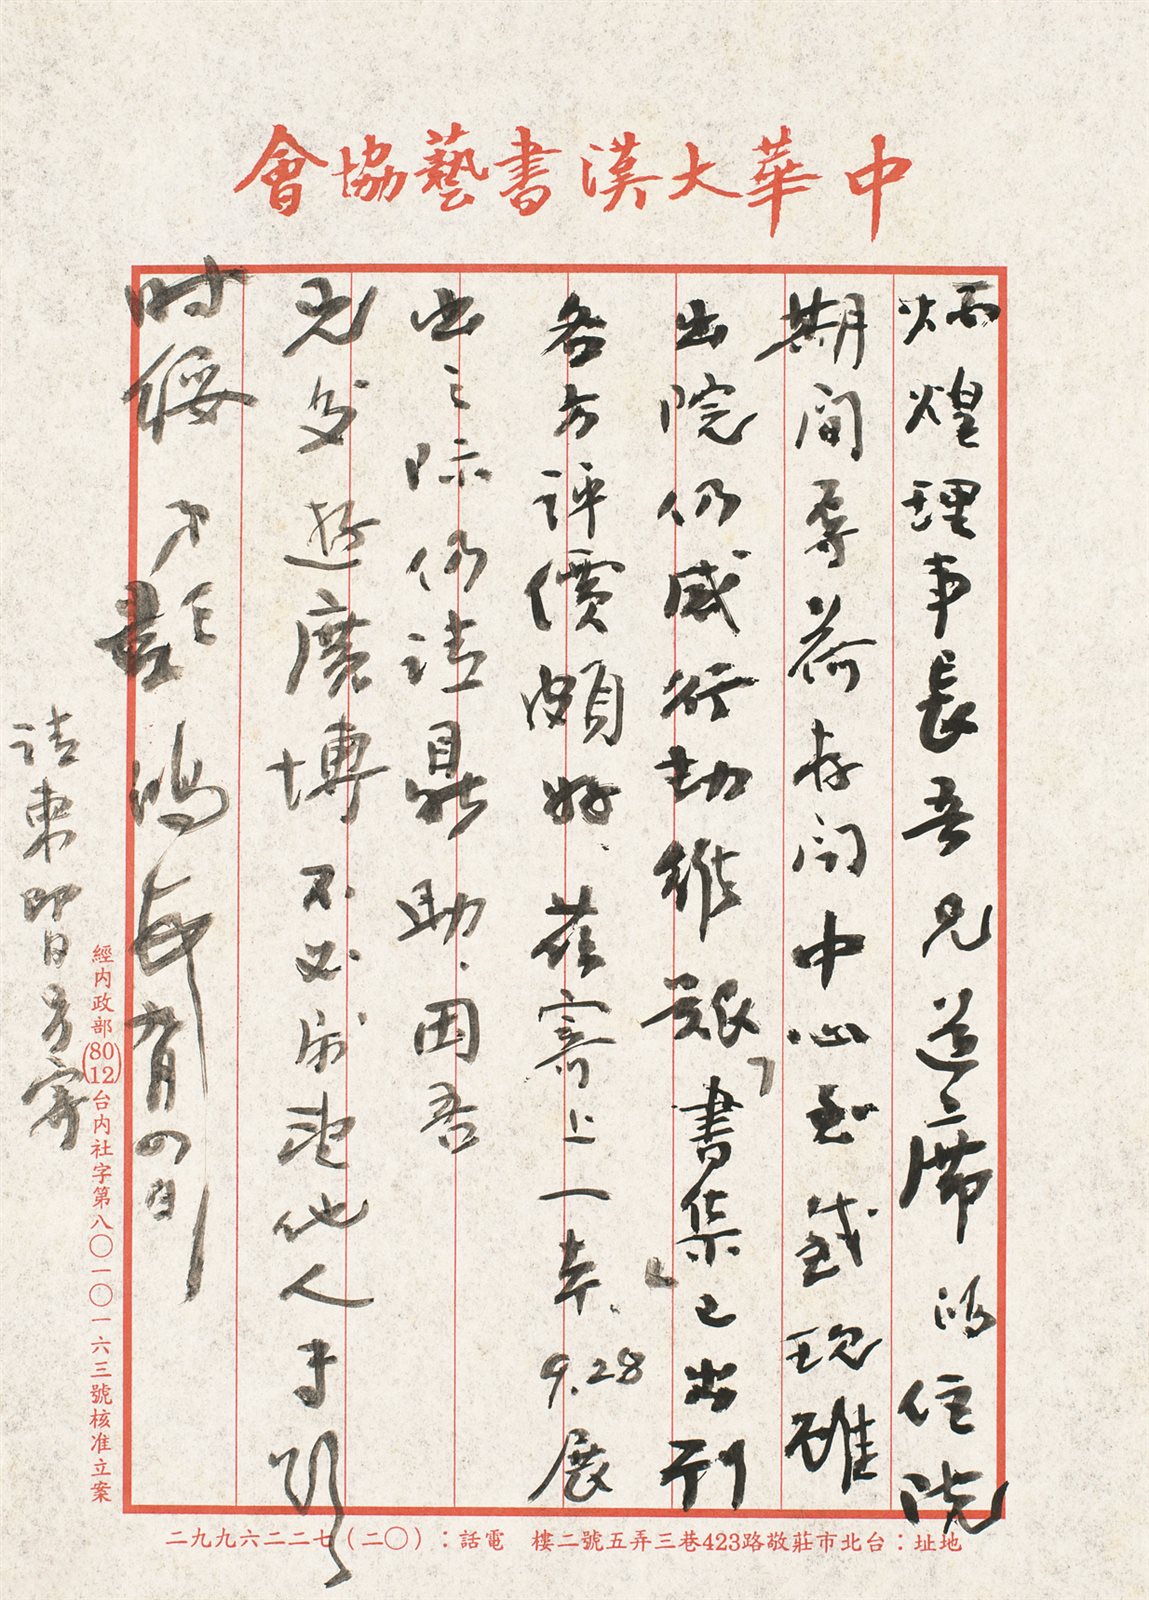 中華大漢書藝協會
炳煌理事長吾兄道席 鴻住院
期間辱荷存問中心至感現雖
出院仍感行動維艱「書集」已出刊
各方評價頗好、茲寄上一本、9.28展
出之際仍請鼎助、因吾
兄交遊廣博不必他人頌
時綏 弟鴻九月四日
請柬即日另寄
經內政部(80 12)台內社字第八〇一〇一六三號核准立案
地址：台北市莊敬路423巷三弄五號二樓 電話：(〇二)七二二六九九二